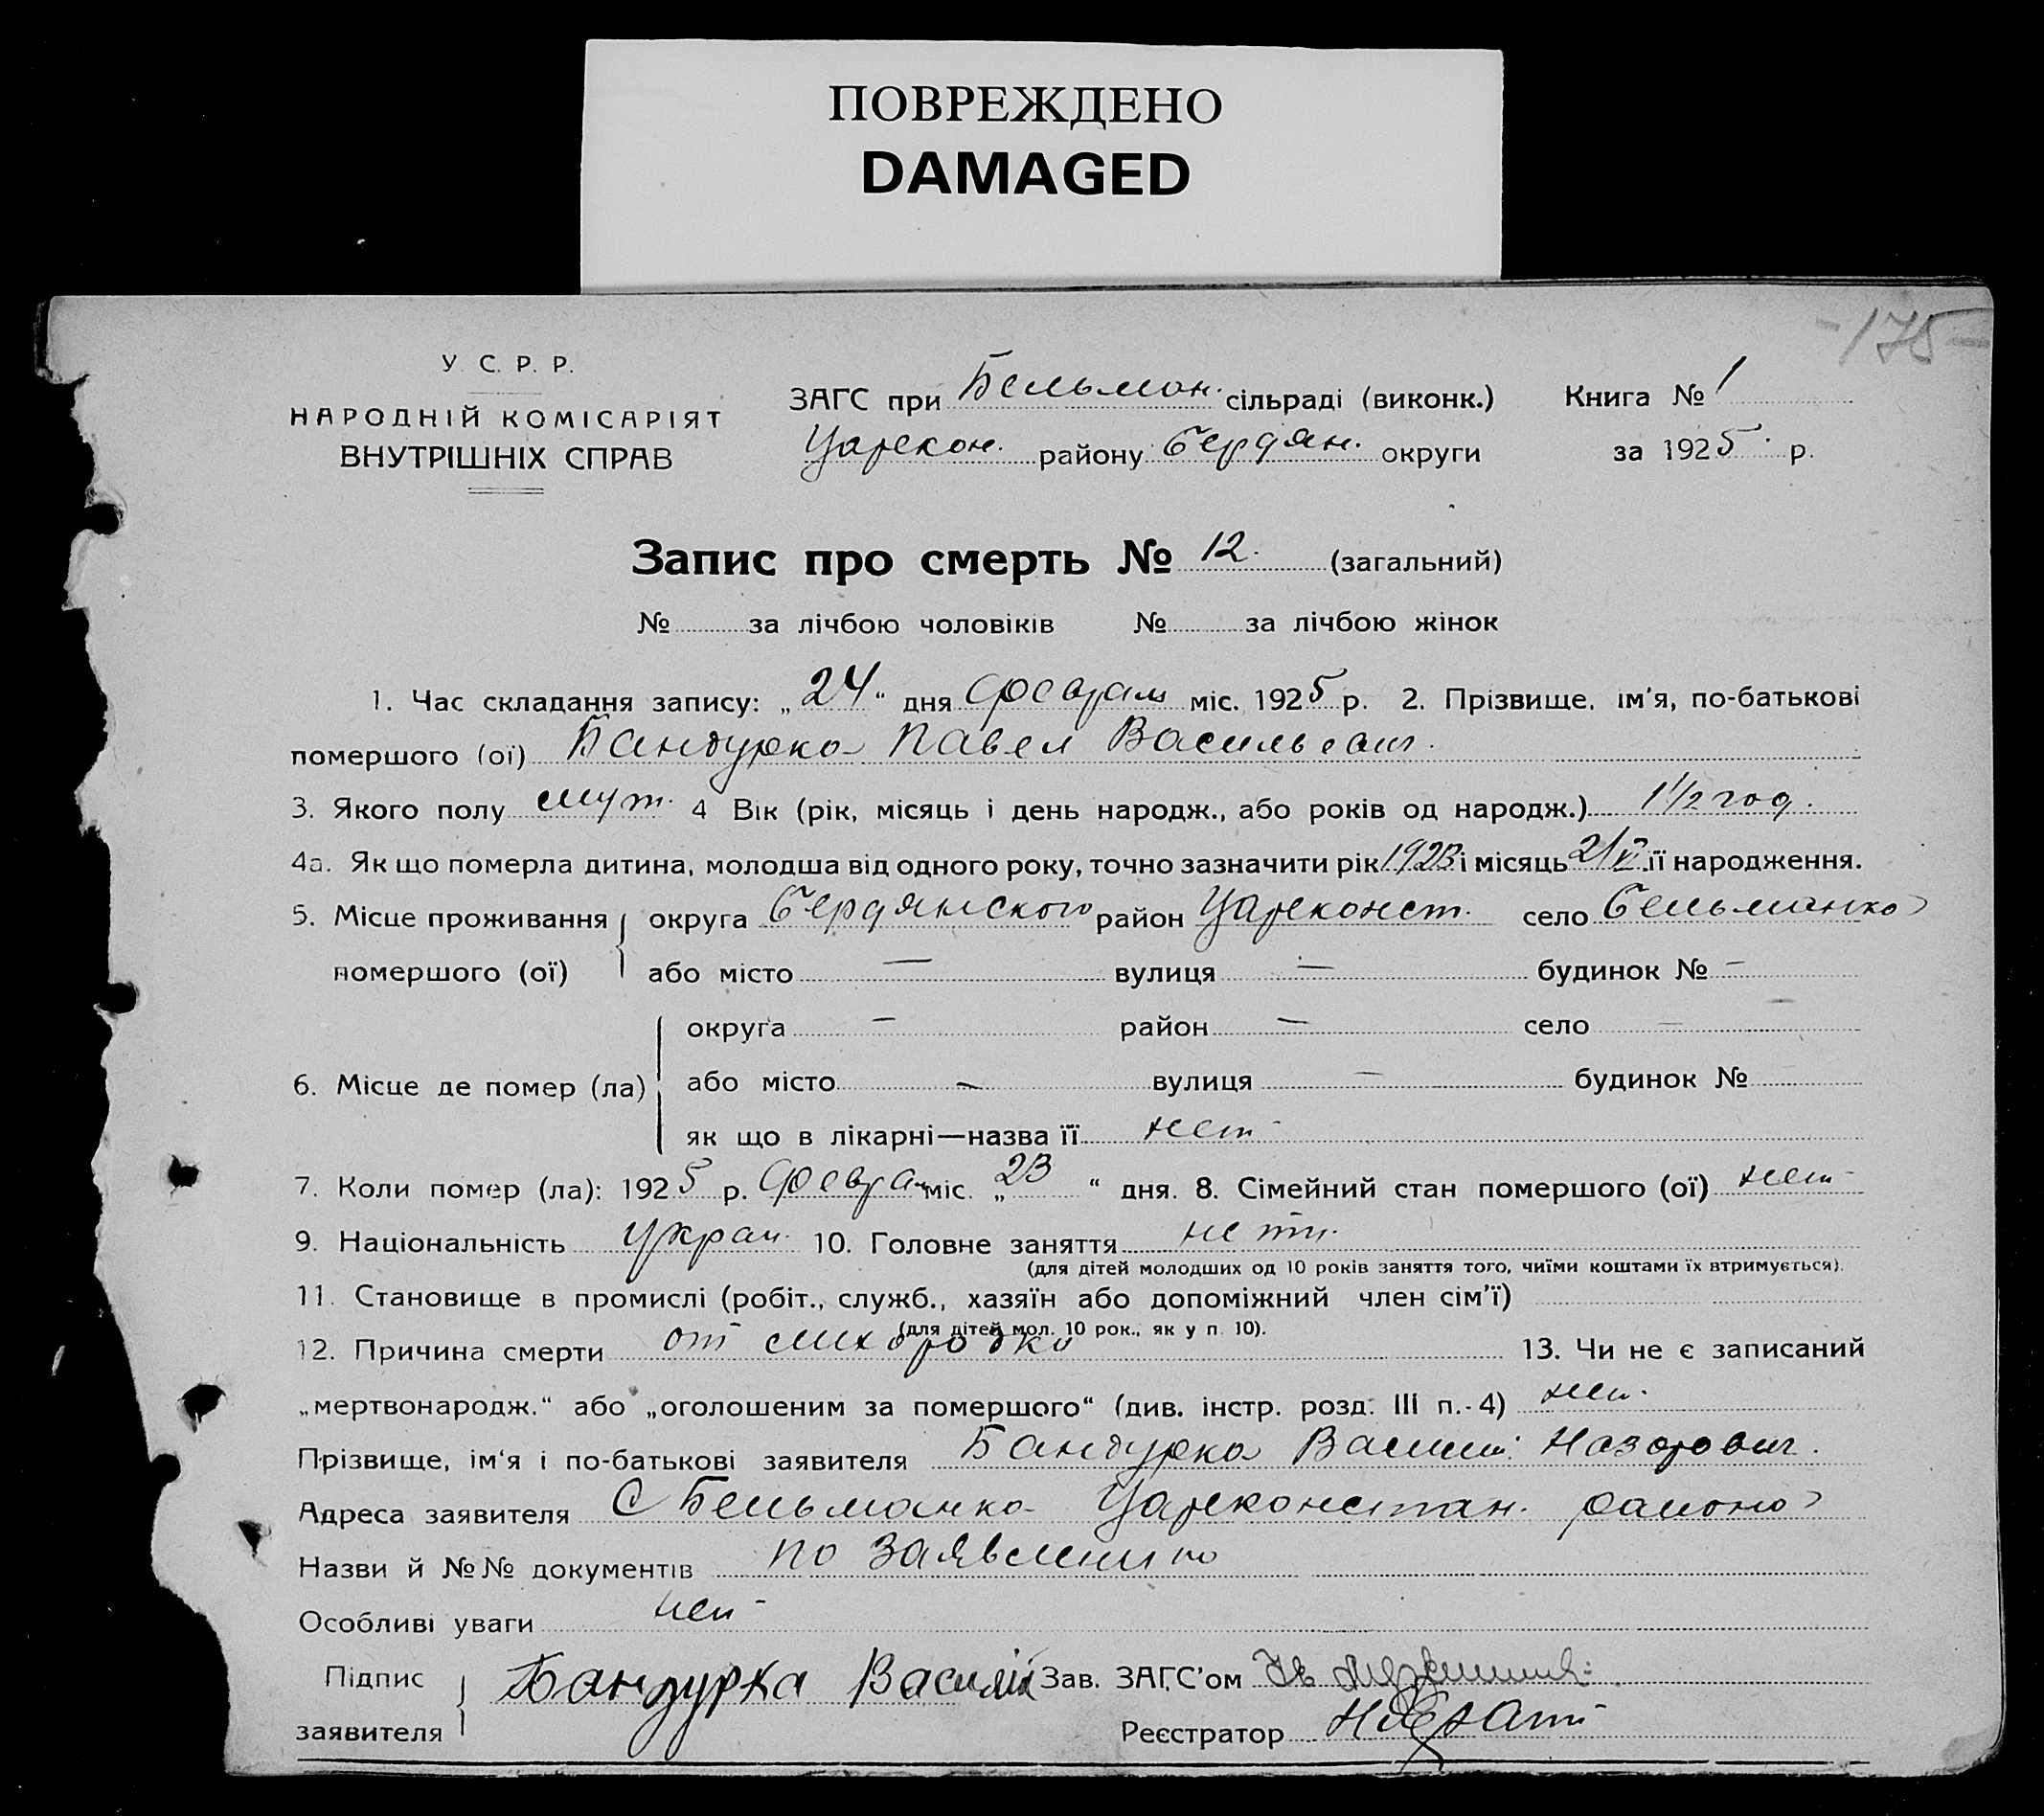 ПОВРЕЖДЕНО
DAMAGED
-175-
У. С. Р. Р.
НАРОДНІЙ КОМІСАРІЯТ
ВНУТРІШНІХ СПРАВ
ЗАГС при Бельман. сільраді (виконк.) Книга № 1
Царекон. району Бердян. округи за 1925 р.
Запис про смерть № 12. (загальний)
№ за лічбою чоловіків № за лічбою жінок
1. Час складання запису: „24“ дня Феврал міс. 1925 р. 2. Прізвище, ім'я, по-батькові
помершого (ої) Бандурка Павел Васильевич.
3. Якого полу муж. 4 Вік (рік, місяць і день народж., або років од народж.) 1 1/2 год.
4а. Як що померла дитина, молодша від одного року, точно зазначити рік 1923 і місяць 21/VI її народження.
5. Місце проживання округа Бердянского район Цареконст. село Бельманка
помершого (ої) або місто — вулиця — будинок № —
округа — район — село —
6. Місце де помер (ла) або місто — вулиця — будинок №
як що в лікарні—назва її нет
7. Коли помер (ла): 1925 р. Феврал міс. „23“ дня. 8. Сімейний стан помершого (ої) нет
9. Національність украи. 10. Головне заняття нет
(для дітей молодших од 10 років заняття того, чиїми коштами їх втримується).
11. Становище в промислі (робіт., служб., хазяїн або допоміжний член сім'ї)
(для дітей мол. 10 рок., як у п. 10).
12. Причина смерти от лихорадки 13. Чи не є записаний
„мертвонародж.“ або „оголошеним за помершого“ (див. інстр. розд. III п. 4) нет
Прізвище, ім'я і по-батькові заявителя Бандурка Васили Назарович.
Адреса заявителя С Бельманка Цареконстан. района
Назви й №№ документів по заявлению
Особливі уваги нет
Підпис заявителя Бандурка Василій Зав. ЗАГС'ом
Реєстратор